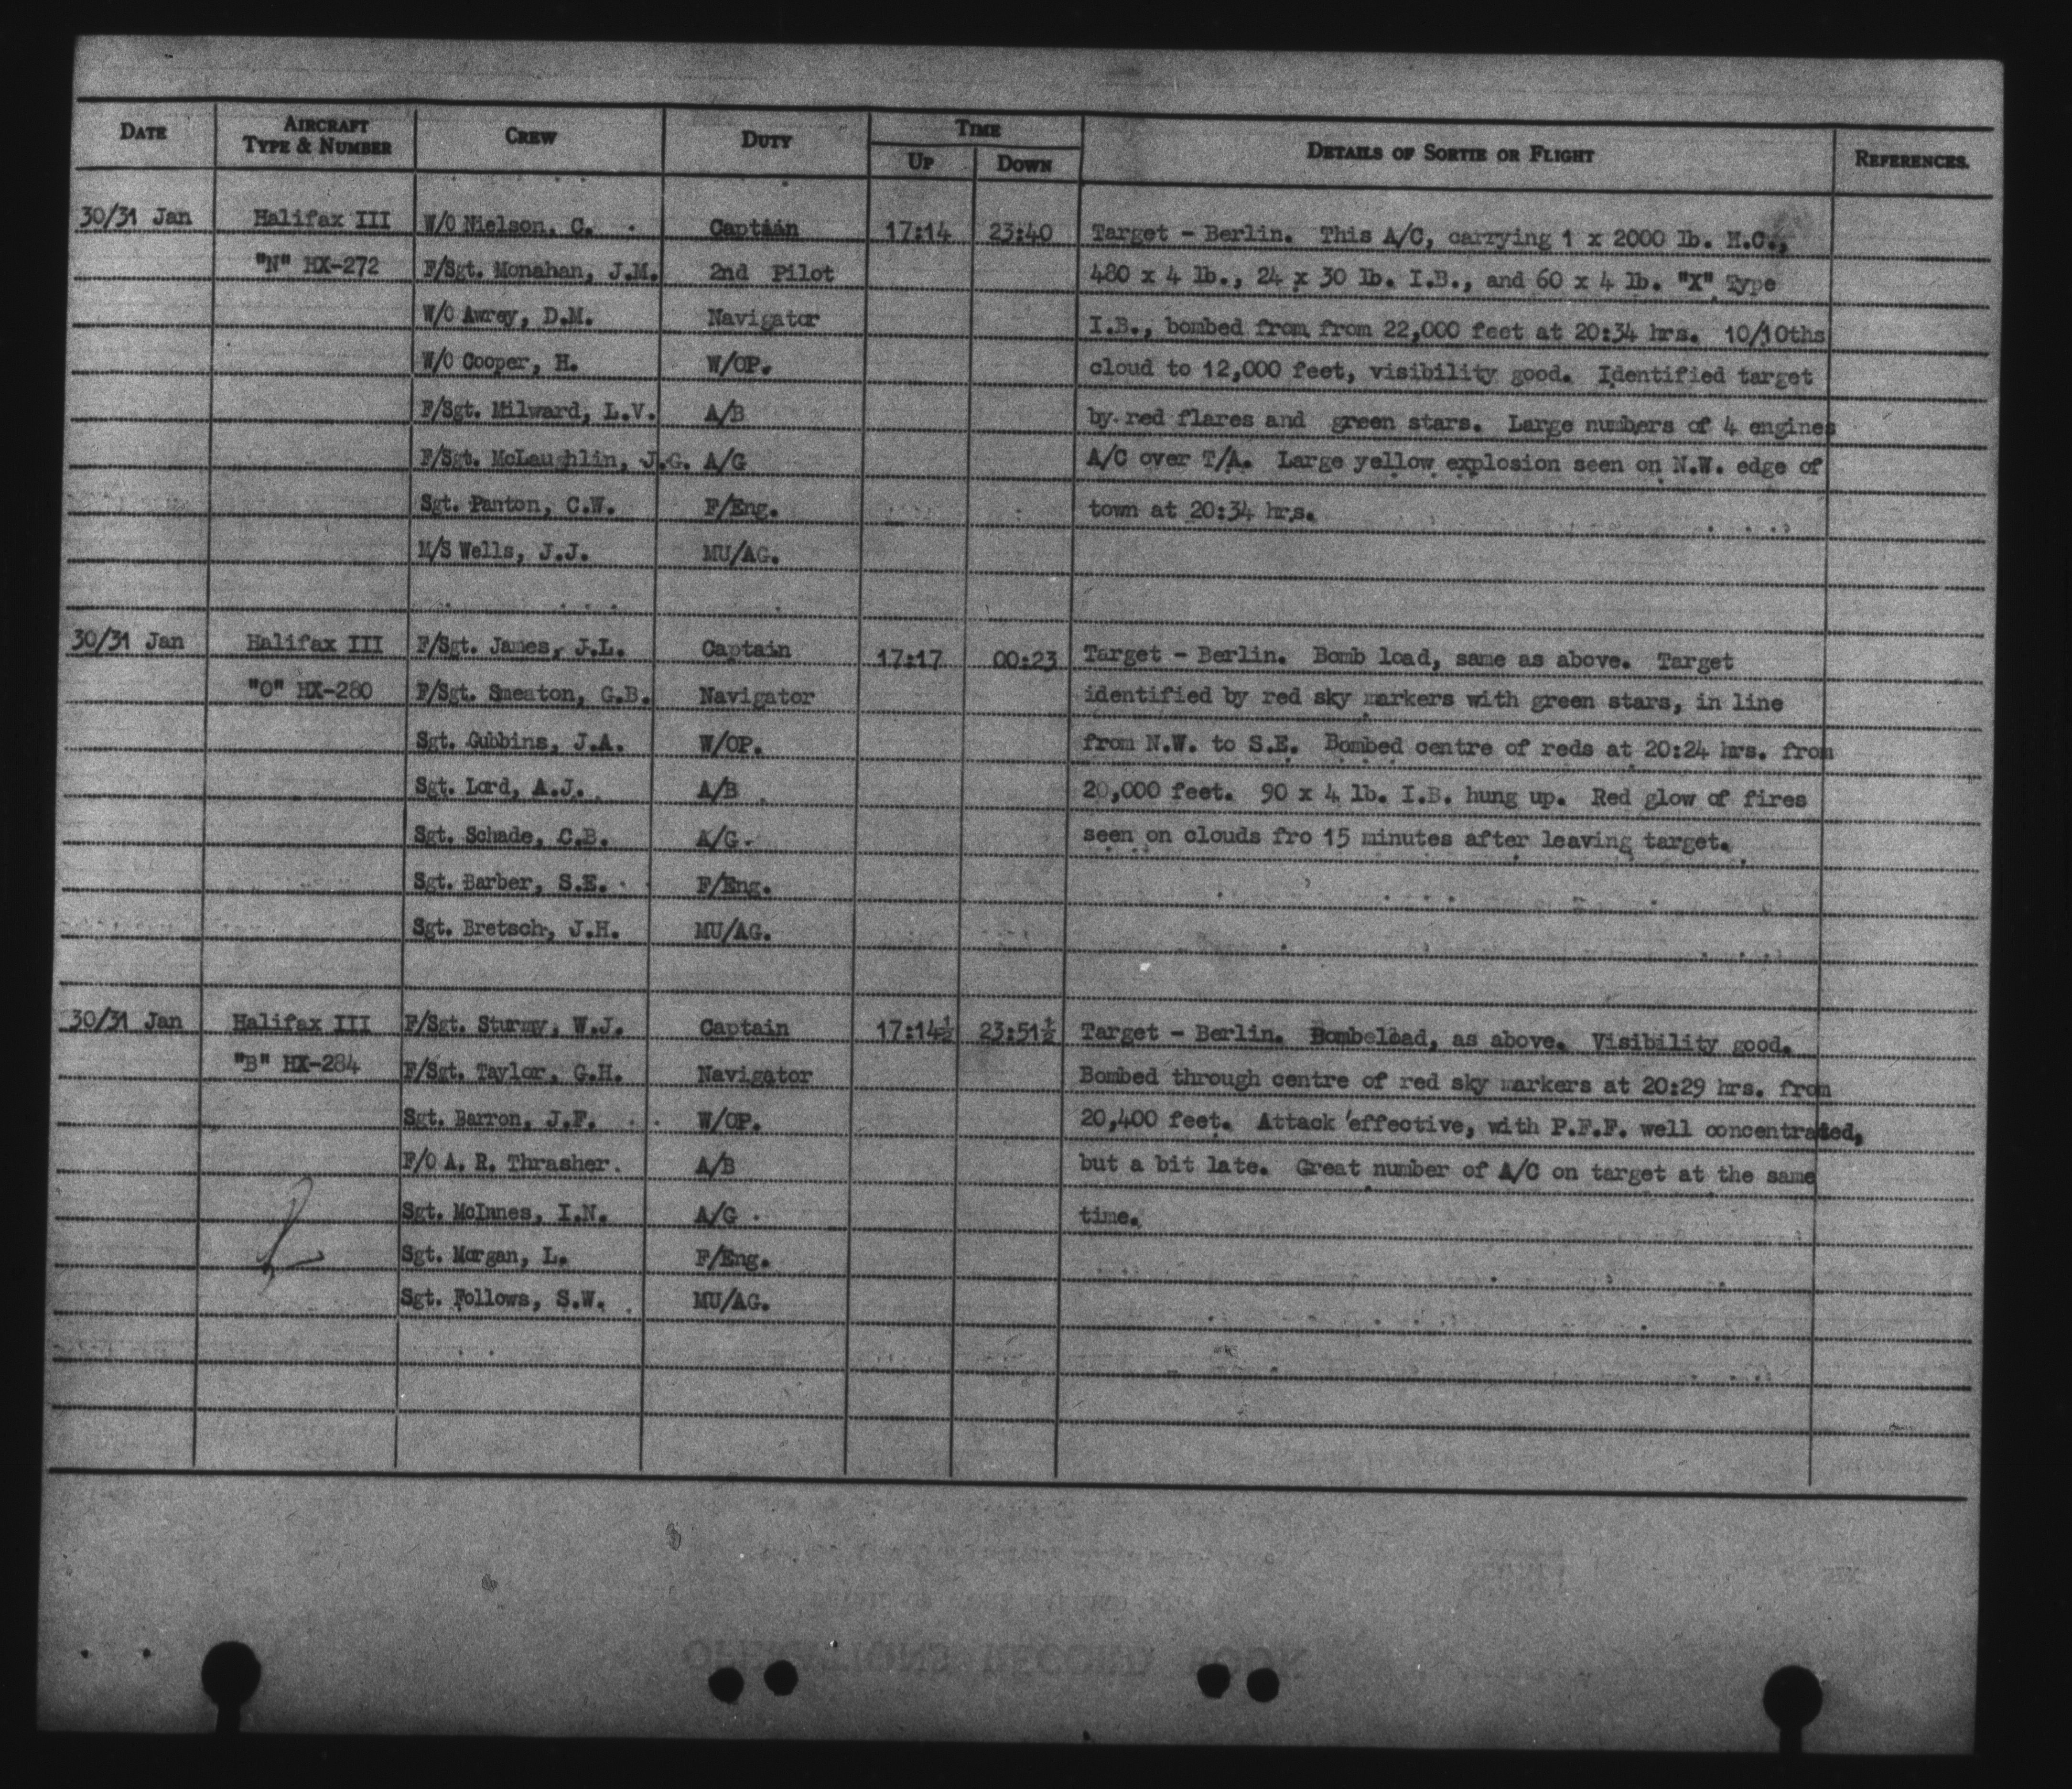 DATE AIRCRAFT TYPE & NUMBER CREW DUTY TIME UP DOWN DETAILS OF SORTIE OR FLIGHT REFERENCES.
30/31 Jan Halifax III W/O Nielson, C. Captain 17:14 23:40 Target - Berlin. This A/C, carrying 1 x 2000 lb. H.C.,
"N" HX-272 F/Sgt. Monahan, J.M. 2nd Pilot 480 x 4 lb., 24 x 30 lb. I.B., and 60 x 4 lb. "X" Type
W/O Awrey, D.M. Navigator I.B., bombed from from 22,000 feet at 20:34 hrs. 10/10ths
W/O Cooper, H. W/OP. cloud to 12,000 feet, visibility good. Identified target
F/Sgt. Milward, L.V. A/B by red flares and green stars. Large numbers of 4 engines
F/Sgt. McLaughlin, J.G. A/G A/C over T/A. Large yellow explosion seen on N.W. edge of
Sgt. Panton, C.W. F/Eng. town at 20:34 hrs.
M/S Wells, J.J. MU/AG.
30/31 Jan Halifax III F/Sgt. James, J.L. Captain 17:17 00:23 Target - Berlin. Bomb load, same as above. Target
"O" HX-280 F/Sgt. Smeaton, G.B. Navigator identified by red sky markers with green stars, in line
Sgt. Gubbins, J.A. W/OP. from N.W. to S.E. Bombed centre of reds at 20:24 hrs. from
Sgt. Lord, A.J. A/B 20,000 feet. 90 x 4 lb. I.B. hung up. Red glow of fires
Sgt. Schade, C.B. A/G seen on clouds fro 15 minutes after leaving target.
Sgt. Barber, S.E. F/Eng.
Sgt. Bretsch, J.H. MU/AG.
30/31 Jan Halifax III F/Sgt. Sturmy, W.J. Captain 17:14½ 23:51½ Target - Berlin. Bombeload, as above. Visibility good.
"B" HX-284 F/Sgt. Taylor, G.H. Navigator Bombed through centre of red sky markers at 20:29 hrs. from
Sgt. Barron, J.F. W/OP. 20,400 feet. Attack effective, with P.F.F. well concentrated,
F/O A. R. Thrasher. A/B but a bit late. Great number of A/C on target at the same
Sgt. McInnes, I.N. A/G time.
Sgt. Morgan, L. F/Eng.
Sgt. Follows, S.W. MU/AG.